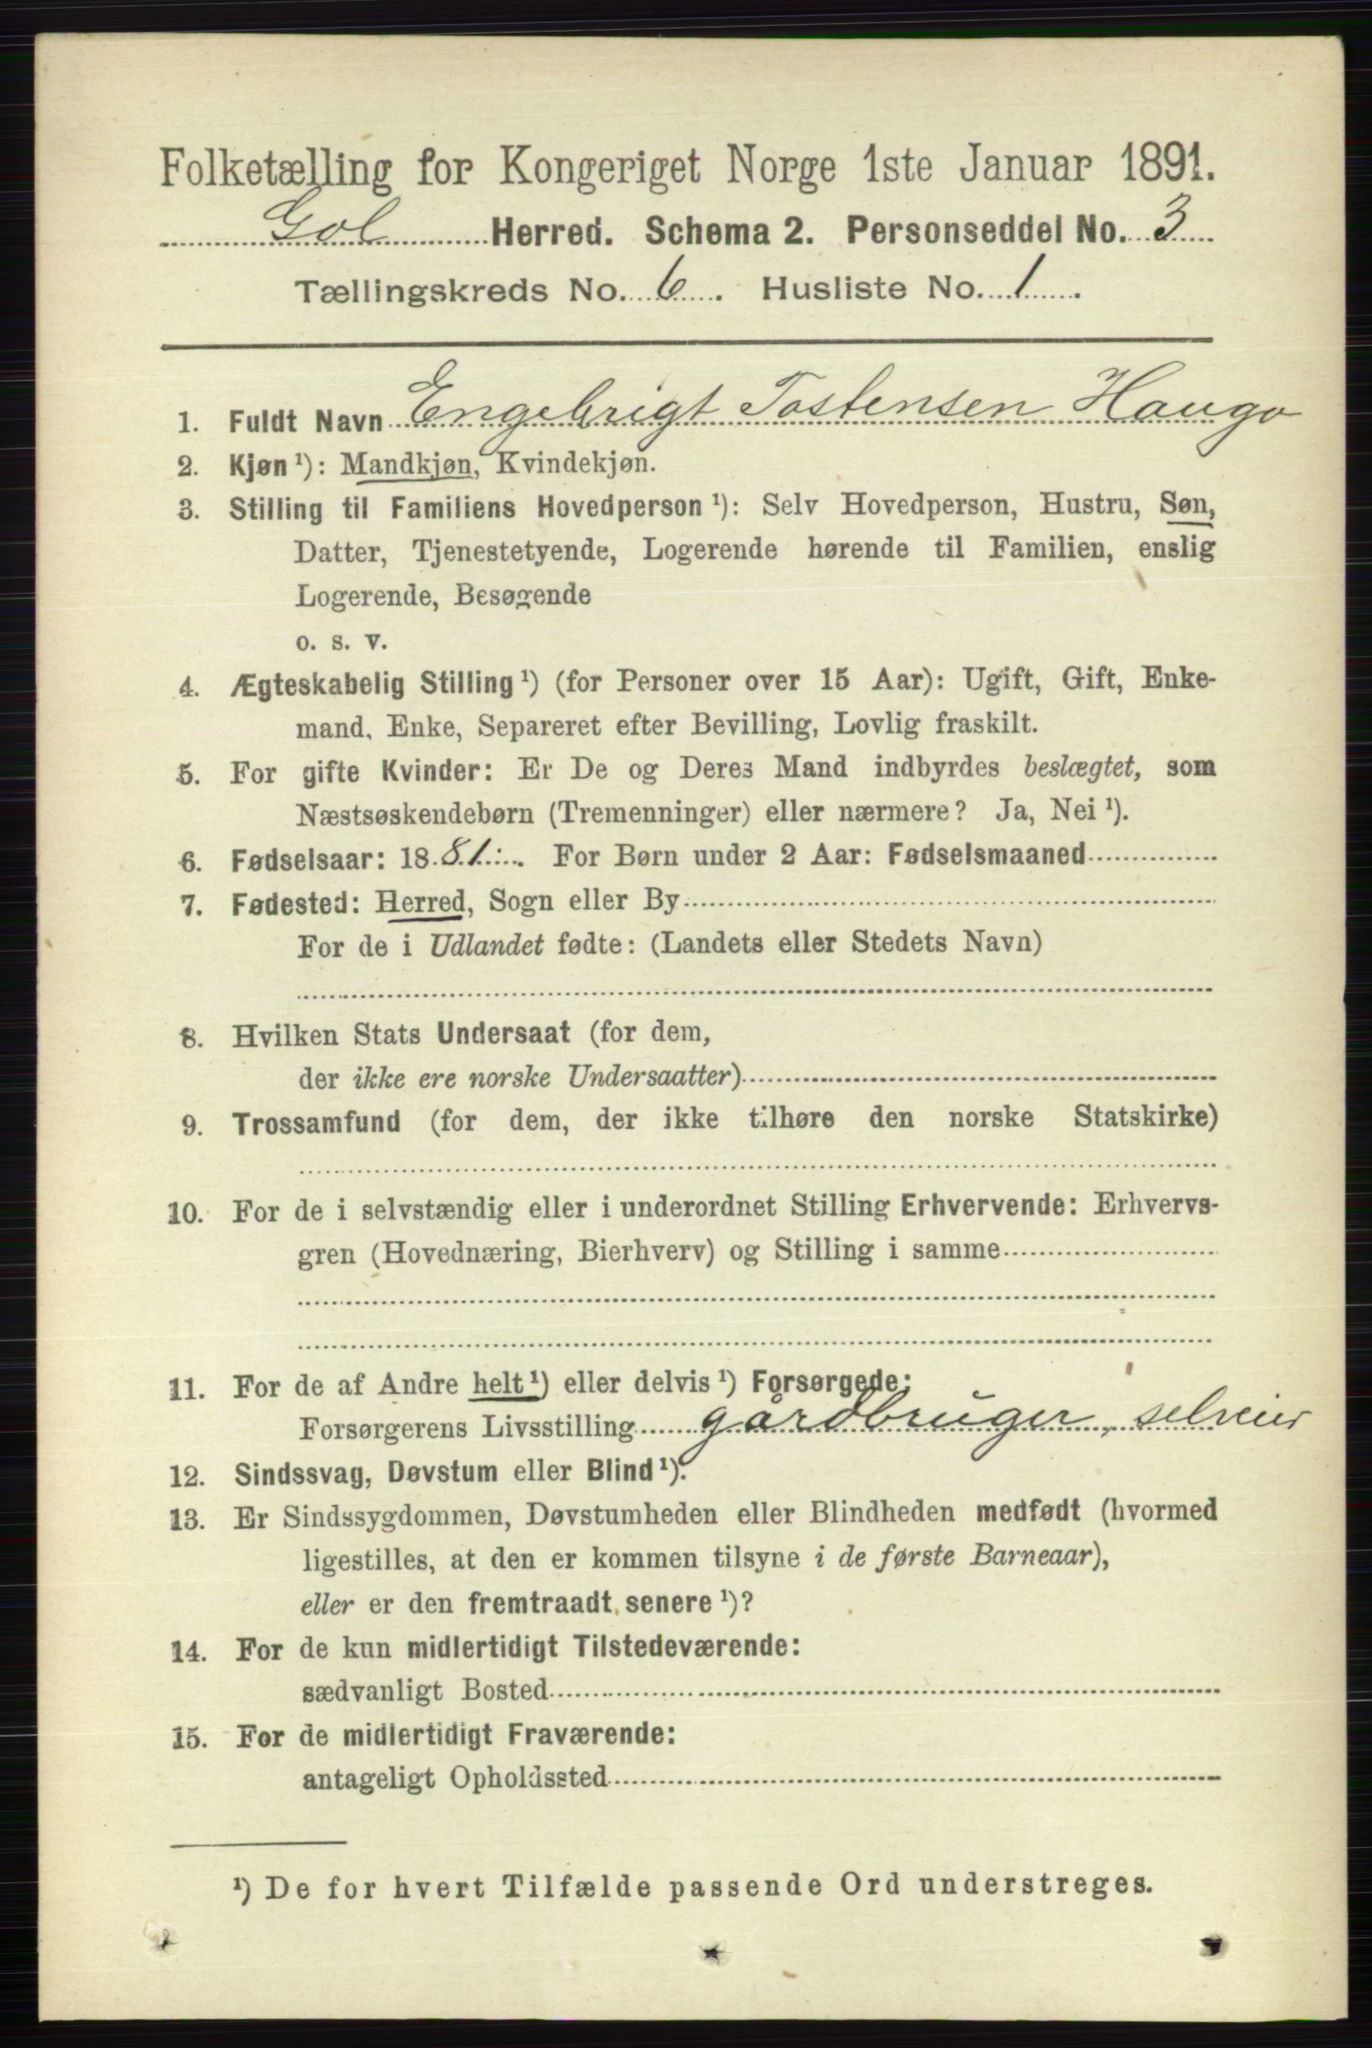 Folketælling for Kongeriget Norge 1ste Januar 1891.
Gol Herred. Schema 2. Personseddel No. 3
Tællingskreds No. 6. Husliste No. 1.
1. Fuldt Navn Engebrigt Tostensen Haugo
2. Kjøn ¹): Mandkjøn, Kvindekjøn.
3. Stilling til Familiens Hovedperson ¹): Selv Hovedperson, Hustru, Søn,
Datter, Tjenestetyende, Logerende hørende til Familien, enslig
Logerende, Besøgende
o. s. v.
4. Ægteskabelig Stilling ¹) (for Personer over 15 Aar): Ugift, Gift, Enke-
mand, Enke, Separeret efter Bevilling, Lovlig fraskilt.
5. For gifte Kvinder: Er De og Deres Mand indbyrdes beslægtet, som
Næstsøskendebørn (Tremenninger) eller nærmere? Ja, Nei ¹).
6. Fødselsaar: 1881. For Børn under 2 Aar: Fødselsmaaned
7. Fødested: Herred, Sogn eller By
For de i Udlandet fødte: (Landets eller Stedets Navn)
8. Hvilken Stats Undersaat (for dem,
der ikke ere norske Undersaatter)
9. Trossamfund (for dem, der ikke tilhøre den norske Statskirke)
10. For de i selvstændig eller i underordnet Stilling Erhvervende: Erhvervs-
gren (Hovednæring, Bierhverv) og Stilling i samme
11. For de af Andre helt ¹) eller delvis ¹) Forsørgede:
Forsørgerens Livsstilling gårdbruger, selveier
12. Sindssvag, Døvstum eller Blind ¹).
13. Er Sindssygdommen, Døvstumheden eller Blindheden medfødt (hvormed
ligestilles, at den er kommen tilsyne i de første Barneaar),
eller er den fremtraadt senere ¹)?
14. For de kun midlertidigt Tilstedeværende:
sædvanligt Bosted
15. For de midlertidigt Fraværende:
antageligt Opholdssted
¹) De for hvert Tilfælde passende Ord understreges.